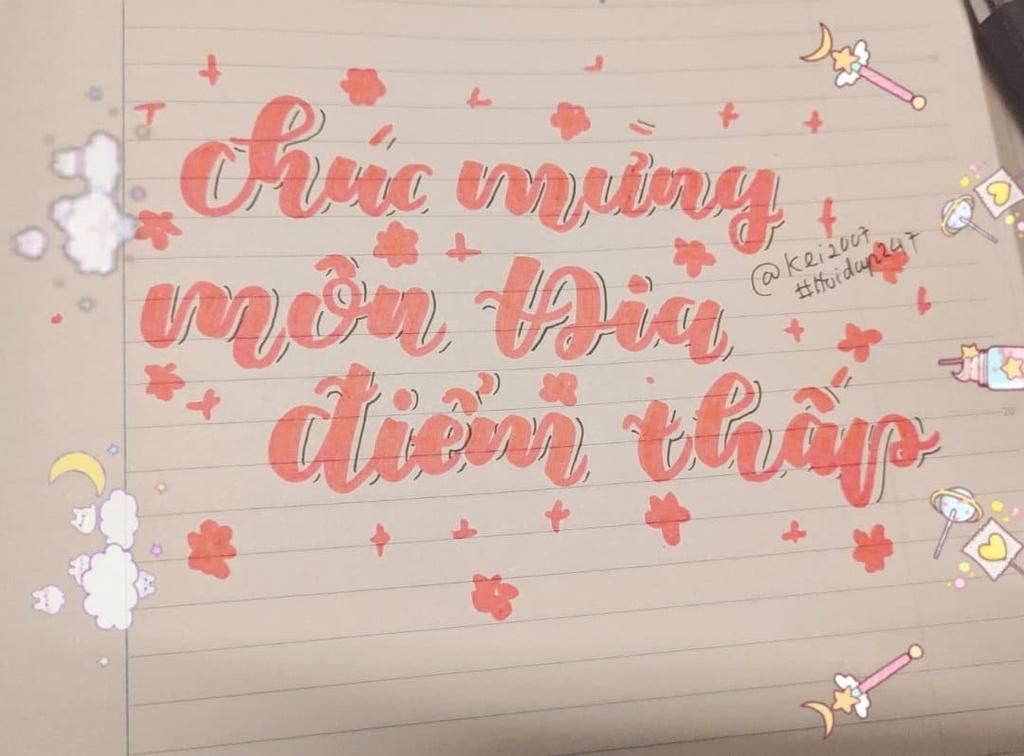 chúc mừng
@kei2007
#Hoidap247
môn Địa
điểm thấp